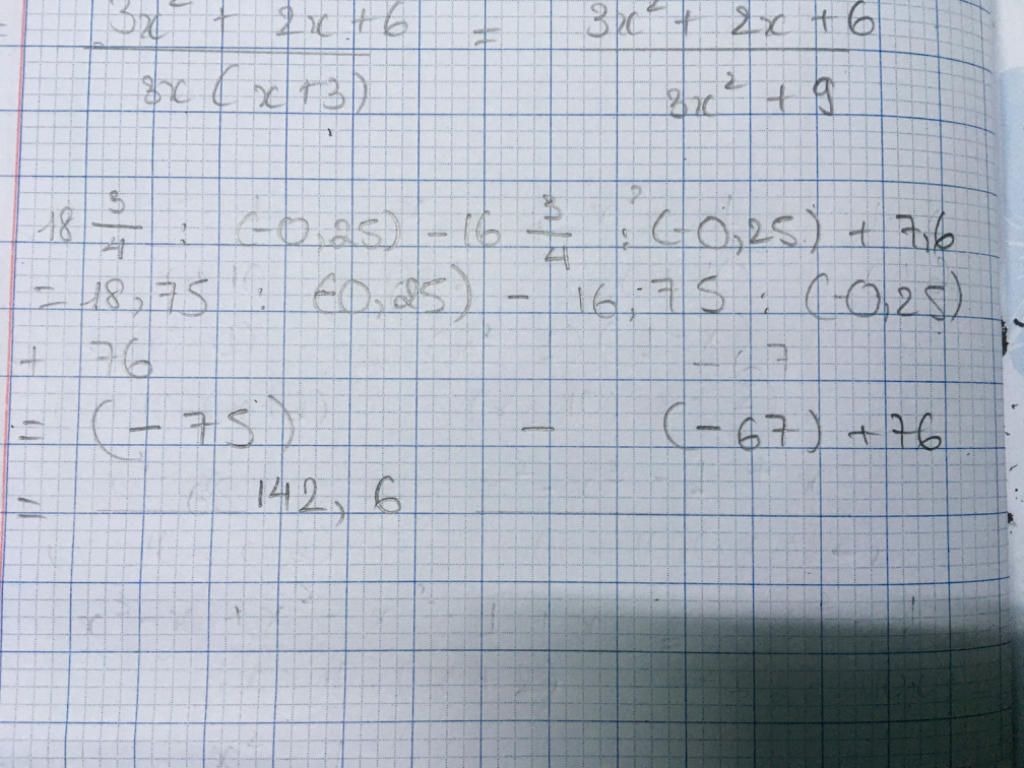 = 3x² + 2x + 6 / 3x (x+3) = 3x² + 2x + 6 / 3x² + 9
18 3/4 : (-0,25) - 16 3/4 : (-0,25) + 7,6
= 18,75 : (-0,25) - 16,75 : (-0,25)
+ 76
= (-75) - (-67) + 76
= 142,6